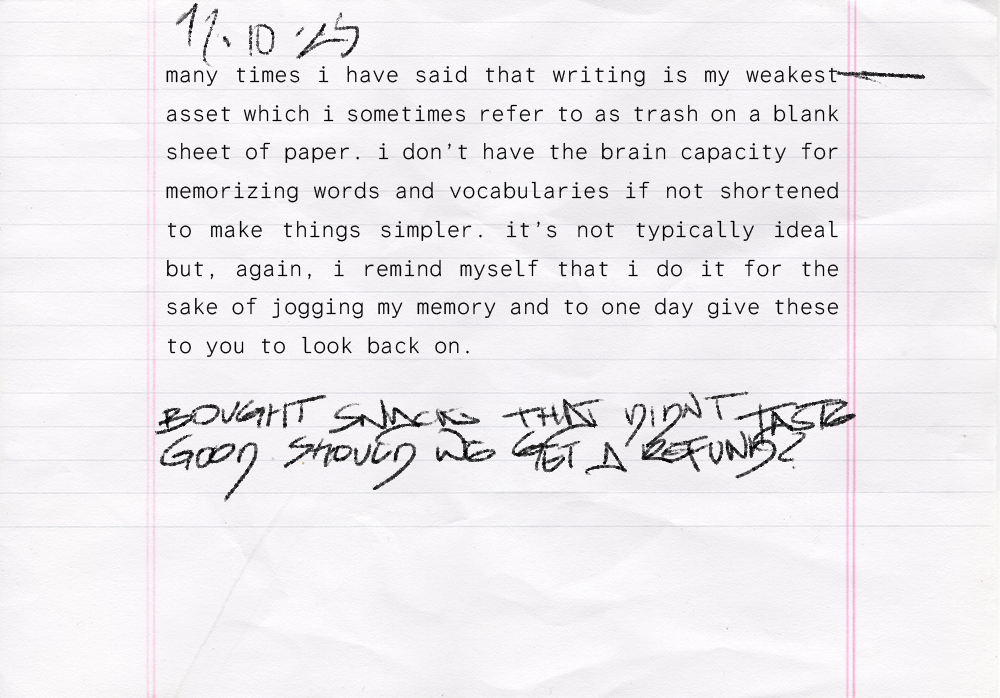 11.10.25
many times i have said that writing is my weakest
asset which i sometimes refer to as trash on a blank
sheet of paper. i don’t have the brain capacity for
memorizing words and vocabularies if not shortened
to make things simpler. it’s not typically ideal
but, again, i remind myself that i do it for the
sake of jogging my memory and to one day give these
to you to look back on.
BOUGHT SNACKS THAT DIDNT TASTE
GOOD SHOULD WE GET A REFUND?